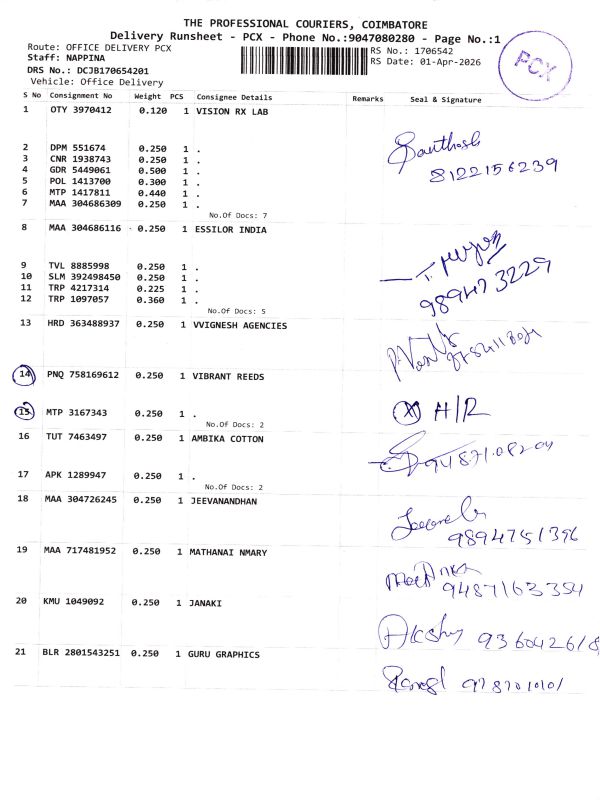 THE PROFESSIONAL COURIERS, COIMBATORE
Delivery Runsheet - PCX - Phone No.:9047080280 - Page No.:1
Route: OFFICE DELIVERY PCX
Staff: NAPPINA
DRS No.: DCJB170654201
Vehicle: Office Delivery
RS No.: 1706542
RS Date: 01-Apr-2026
PCX
S No Consignment No Weight PCS Consignee Details Remarks Seal & Signature
1 OTY 3970412 0.120 1 VISION RX LAB
2 DPM 551674 0.250 1 .
Santhosh
3 CNR 1938743 0.250 1 .
4 GDR 5449061 0.500 1 .
8122156239
5 POL 1413700 0.300 1 .
6 MTP 1417811 0.440 1 .
7 MAA 304686309 0.250 1 .
No.Of Docs: 7
8 MAA 304686116 0.250 1 ESSILOR INDIA
9 TVL 8885998 0.250 1 .
10 SLM 392498450 0.250 1 .
11 TRP 4217314 0.225 1 .
12 TRP 1097057 0.360 1 .
989473229
No.Of Docs: 5
13 HRD 363488937 0.250 1 VVIGNESH AGENCIES
14 PNQ 758169612 0.250 1 VIBRANT REEDS
15 MTP 3167343 0.250 1 .
H/R
No.Of Docs: 2
16 TUT 7463497 0.250 1 AMBIKA COTTON
17 APK 1289947 0.250 1 .
No.Of Docs: 2
18 MAA 304726245 0.250 1 JEEVANANDHAN
9894751396
19 MAA 717481952 0.250 1 MATHANAI NMARY
9487163354
20 KMU 1049092 0.250 1 JANAKI
Akshy 936042618
21 BLR 2801543251 0.250 1 GURU GRAPHICS
9787010101